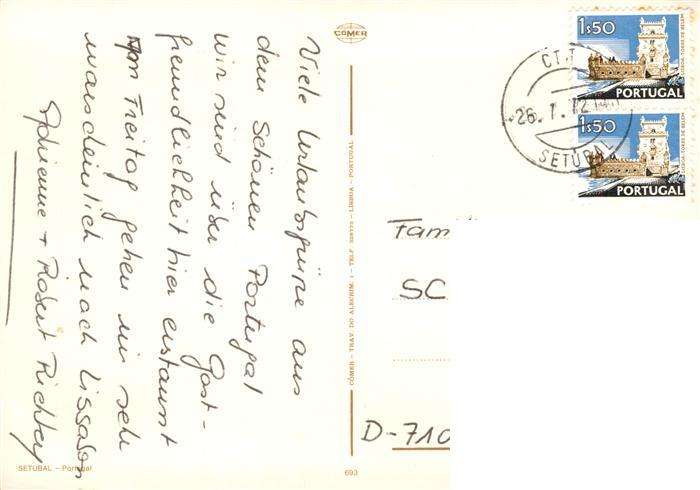 COMER
Viele Urlaubsgrüße aus
dem Schönen Portugal
wir sind über die Gast-
freundlichkeit hier erstaunt
Am Freitag gehen wir sehr
warscheinlich nach Lissabon
+ Robert
SETUBAL – Portugal
693
COMER – TRAV. DO ALECRIM, 1 – TELF. – LISBOA – PORTUGAL
1$50
PORTUGAL
TORRE DE BELEM
1$50
PORTUGAL
TORRE DE BELEM
CTT
-26. 7. 72
SETÚBAL
Fam
SC
D-710